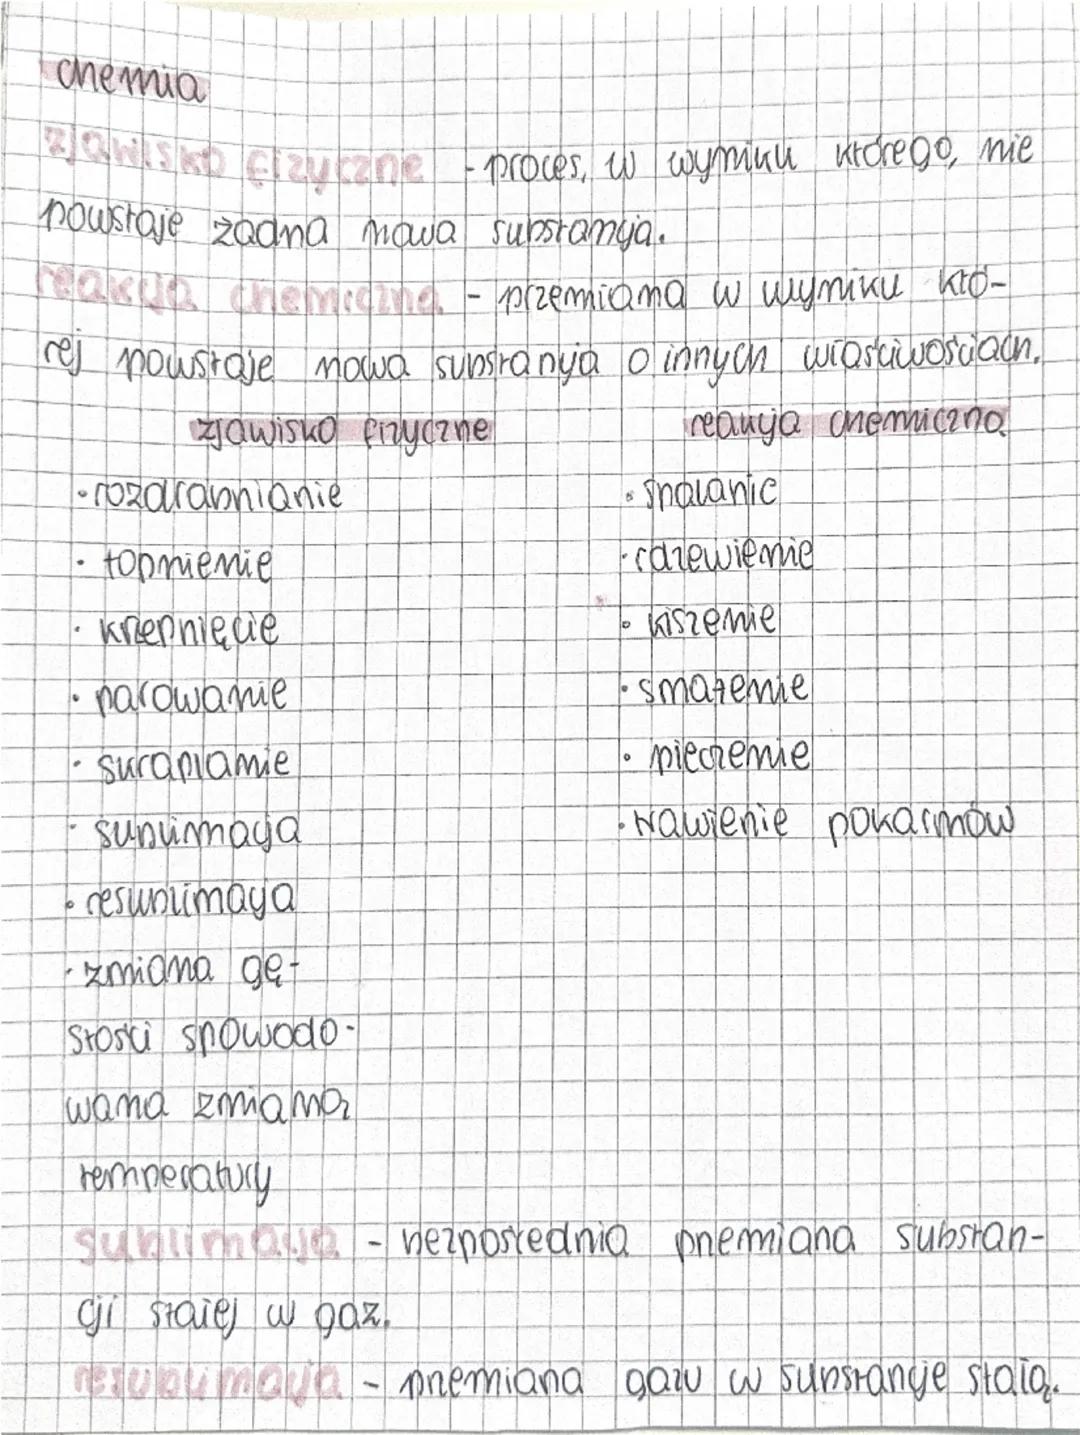 chemia
zjawisko fizyczne - proces, w wyniku którego, nie
powstaje żadna nowa substancja.
reakcja chemiczna - przemiana w wyniku któ-
rej powstaje nowa substancja o innych właściwościach.
zjawisko fizyczne reakcja chemiczna
• rozdrabnianie • spalanie
• topnienie • rdzewienie
• krzepnięcie • kiszenie
• parowanie • smażenie
• skraplanie • pieczenie
• sublimacja • trawienie pokarmów
• resublimacja
• zmiana gę-
stości spowodo-
wana zmianą
temperatury
sublimacja - bezpośrednia przemiana substan-
cji stałej w gaz.
resublimacja - przemiana gazu w substancje stałą.